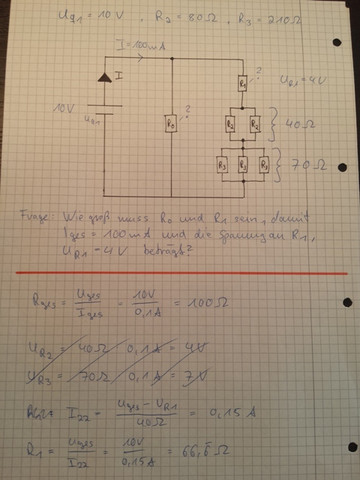 Uq1 = 10V , R2 = 80Ω , R3 = 210Ω
I = 100mA
I
10V
Uq1
R0
?
R1
?
UR1 = 4V
R2
R2
40Ω
R3
R3
R3
70Ω
Frage: Wie groß muss R0 und R1 sein, damit
Iges = 100mA und die Spannung an R1,
UR1 = 4V beträgt?
Rges = Uges / Iges = 10V / 0,1A = 100Ω
UR2 = 40Ω · 0,1A = 4V
UR3 = 70Ω · 0,1A = 7V
I22 = Uges - UR1 / 40Ω = 0,15A
R1 = Uges / I22 = 10V / 0,15A = 66,6Ω